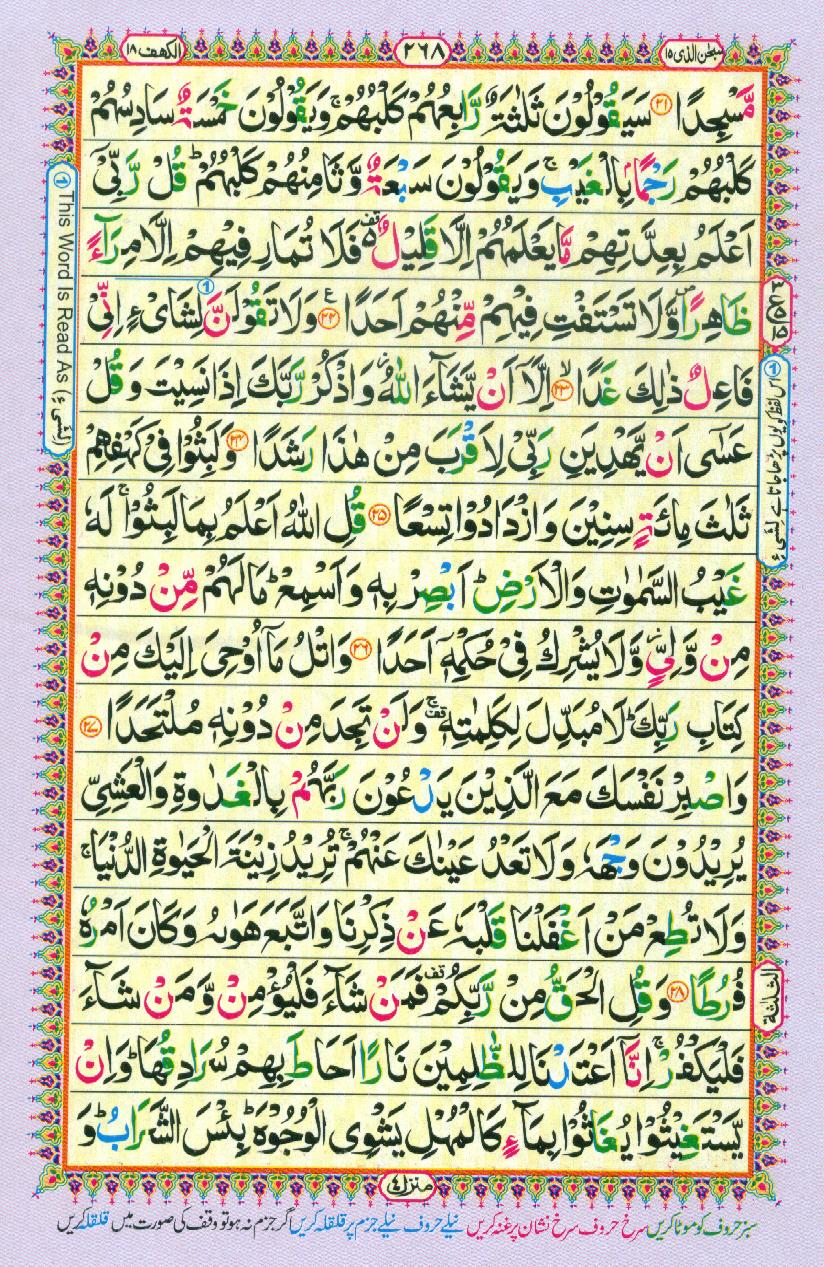 سبحٰن الذی ۱۵
۲۶۸
الکھف ۱۸
مَّسْجِدًا ﴿۲۱﴾ سَیَقُوْلُوْنَ ثَلٰثَةٌ رَّابِعُهُمْ كَلْبُهُمْ ۚ وَیَقُوْلُوْنَ خَمْسَةٌ سَادِسُهُمْ
كَلْبُهُمْ رَجْمًۢا بِالْغَیْبِ ۚ وَیَقُوْلُوْنَ سَبْعَةٌ وَّثَامِنُهُمْ كَلْبُهُمْ ؕ قُلْ رَّبِّیْۤ
اَعْلَمُ بِعِدَّتِهِمْ مَّا یَعْلَمُهُمْ اِلَّا قَلِیْلٌ ۵۫ فَلَا تُمَارِ فِیْهِمْ اِلَّا مِرَآءً
ظَاهِرًا ۪ وَّلَا تَسْتَفْتِ فِیْهِمْ مِّنْهُمْ اَحَدًا ﴿۲۲﴾ ع وَلَا تَقُوْلَنَّ لِشَایْءٍ اِنِّیْ
فَاعِلٌ ذٰلِكَ غَدًا ﴿۲۳﴾ ۙ اِلَّاۤ اَنْ یَّشَآءَ اللّٰهُ ؗ وَاذْكُرْ رَّبَّكَ اِذَا نَسِیْتَ وَقُلْ
عَسٰۤی اَنْ یَّهْدِیَنِ رَبِّیْ لِاَقْرَبَ مِنْ هٰذَا رَشَدًا ﴿۲۴﴾ وَلَبِثُوْا فِیْ كَهْفِهِمْ
ثَلٰثَ مِائَةٍ سِنِیْنَ وَازْدَادُوْا تِسْعًا ﴿۲۵﴾ قُلِ اللّٰهُ اَعْلَمُ بِمَا لَبِثُوْا ۚ لَهٗ
غَیْبُ السَّمٰوٰتِ وَالْاَرْضِ ؕ اَبْصِرْ بِهٖ وَاَسْمِعْ ؕ مَا لَهُمْ مِّنْ دُوْنِهٖ
مِنْ وَّلِیٍّ ؗ وَّلَا یُشْرِكُ فِیْ حُكْمِهٖۤ اَحَدًا ﴿۲۶﴾ وَاتْلُ مَاۤ اُوْحِیَ اِلَیْكَ مِنْ
كِتَابِ رَبِّكَ ؕ لَا مُبَدِّلَ لِكَلِمٰتِهٖ ۚ۫ وَلَنْ تَجِدَ مِنْ دُوْنِهٖ مُلْتَحَدًا ﴿۲۷﴾
وَاصْبِرْ نَفْسَكَ مَعَ الَّذِیْنَ یَدْعُوْنَ رَبَّهُمْ بِالْغَدٰوةِ وَالْعَشِیِّ
یُرِیْدُوْنَ وَجْهَهٗ وَلَا تَعْدُ عَیْنٰكَ عَنْهُمْ ۚ تُرِیْدُ زِیْنَةَ الْحَیٰوةِ الدُّنْیَا ۚ
وَلَا تُطِعْ مَنْ اَغْفَلْنَا قَلْبَهٗ عَنْ ذِكْرِنَا وَاتَّبَعَ هَوٰىهُ وَكَانَ اَمْرُهٗ
فُرُطًا ﴿۲۸﴾ وَقُلِ الْحَقُّ مِنْ رَّبِّكُمْ ۫ فَمَنْ شَآءَ فَلْیُؤْمِنْ وَّمَنْ شَآءَ
فَلْیَكْفُرْ ۙ اِنَّاۤ اَعْتَدْنَا لِلظّٰلِمِیْنَ نَارًا ۙ اَحَاطَ بِهِمْ سُرَادِقُهَا ؕ وَاِنْ
یَّسْتَغِیْثُوْا یُغَاثُوْا بِمَآءٍ كَالْمُهْلِ یَشْوِی الْوُجُوْهَ ؕ بِئْسَ الشَّرَابُ ؕ وَ
منزل ۴
① This Word Is Read As (لِشَیْءٍ)
① اس لفظ کو یوں پڑھا جاتا ہے لِشَیْءٍ
الثلثة
سبز حروف کو موٹا کریں سرخ حروف سرخ نشان پر غنہ کریں نیلے حروف نیلے جزم پر قلقلہ کریں اگر جزم نہ ہو تو وقف کی صورت میں قلقلہ کریں